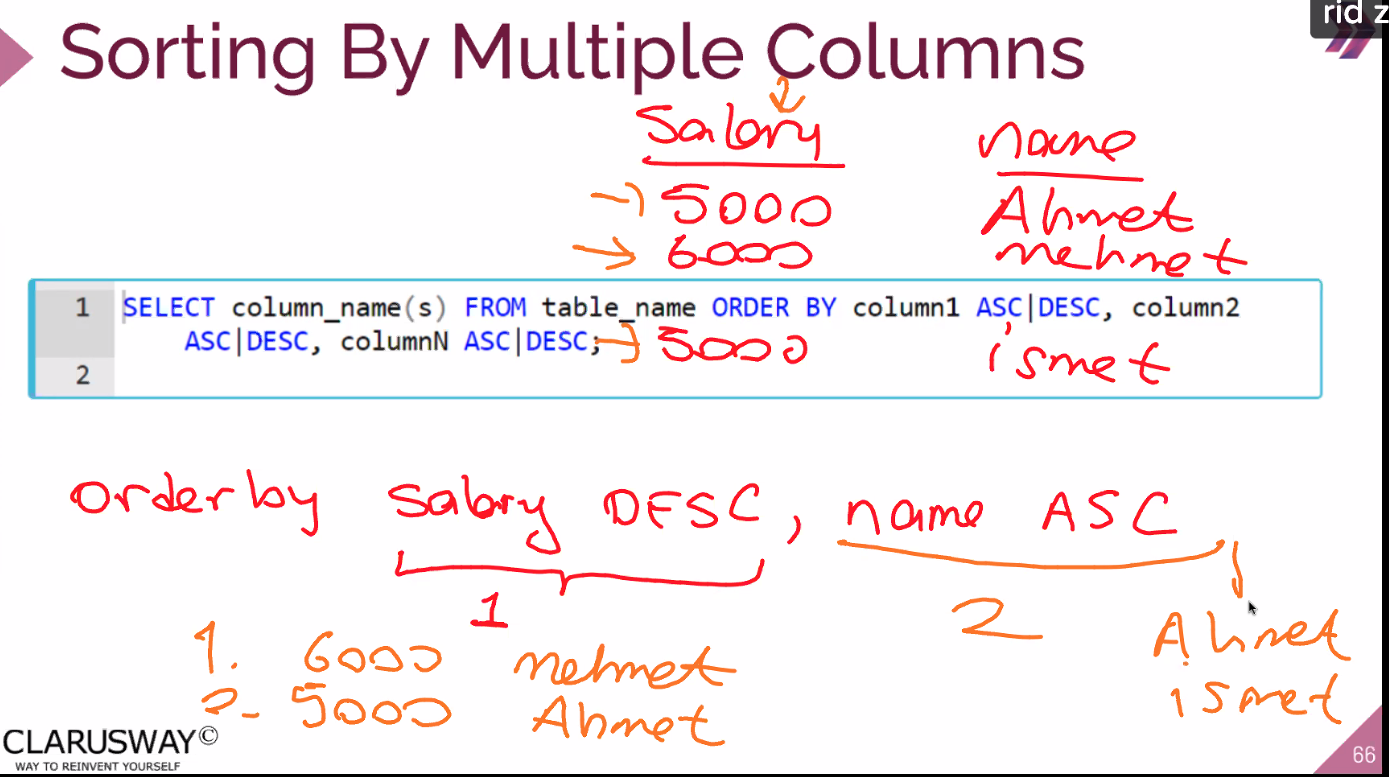 rid z
Sorting By Multiple Columns
Salary name
5000 Ahmet
6000 mehmet
1 SELECT column_name(s) FROM table_name ORDER BY column1 ASC|DESC, column2
ASC|DESC, columnN ASC|DESC;
5000 ismet
2
Order by Salary DESC, name ASC
1 2
1. 6000 mehmet
2- 5000 Ahmet
Ahmet
ismet
CLARUSWAY©
WAY TO REINVENT YOURSELF
66